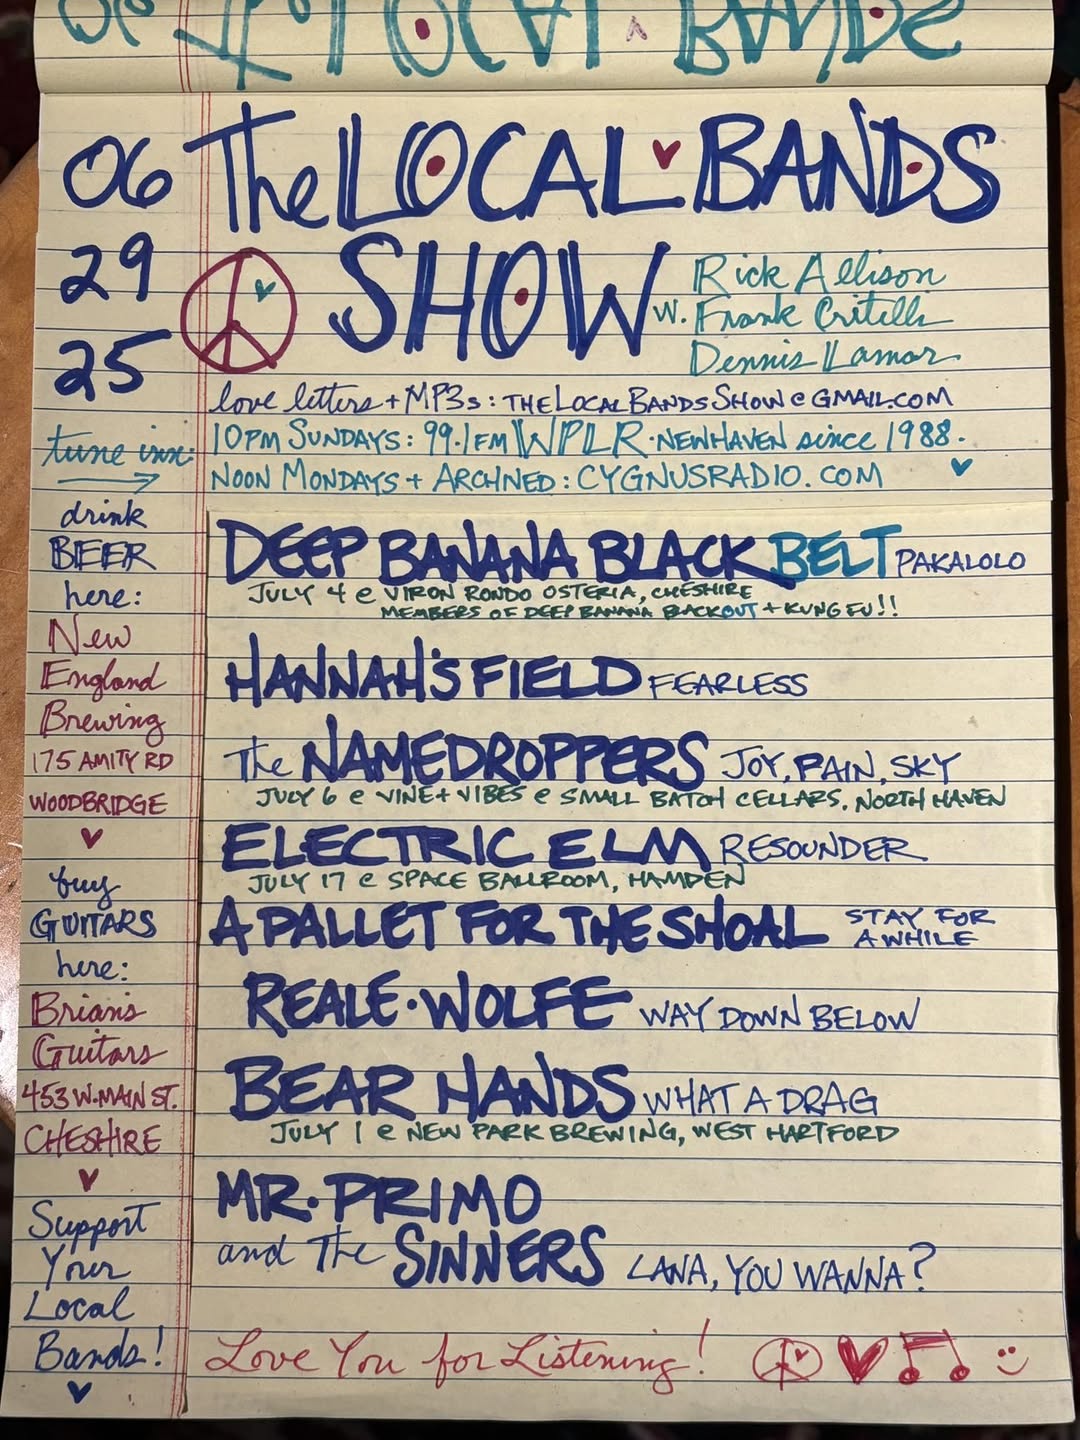 The LOCAL BANDS
06
29
25
The LOCAL BANDS
SHOW
w. Rick Allison
Frank Critelli
Dennis Lamar
love letters + MP3s: THELOCALBANDSSHOW@GMAIL.COM
tune inn:
10PM SUNDAYS: 99.1FM WPLR · NEW HAVEN since 1988.
NOON MONDAYS + ARCHIVED: CYGNUSRADIO.COM
drink
BEER
here:
New
England
Brewing
175 AMITY RD
WOODBRIDGE
buy
GUITARS
here:
Brian's
Guitars
453 W. MAIN ST.
CHESHIRE
Support
Your
Local
Bands!
DEEP BANANA BLACK BELT PAKALOLO
JULY 4 @ VIRON RONDO OSTERIA, CHESHIRE
MEMBERS OF DEEP BANANA BLACKOUT + KUNG FU!!
HANNAH'S FIELD FEARLESS
The NAMEDROPPERS JOY, PAIN, SKY
JULY 6 @ VINE + VIBES @ SMALL BATCH CELLARS, NORTH HAVEN
ELECTRIC ELM RESOUNDER
JULY 17 @ SPACE BALLROOM, HAMDEN
A PALLET FOR THE SHOAL STAY FOR
A WHILE
REALE · WOLFE WAY DOWN BELOW
BEAR HANDS WHAT A DRAG
JULY 1 @ NEW PARK BREWING, WEST HARTFORD
MR. PRIMO
and The SINNERS LANA, YOU WANNA?
Love You for Listening!